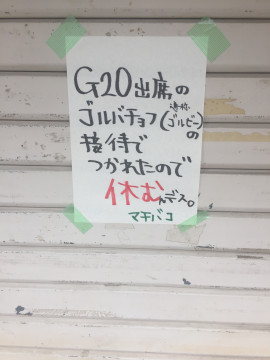 G20出席の
ゴルバチョフ(通称ゴルビー)の
接待で
つかれたので
休むんデス。
マチバコ